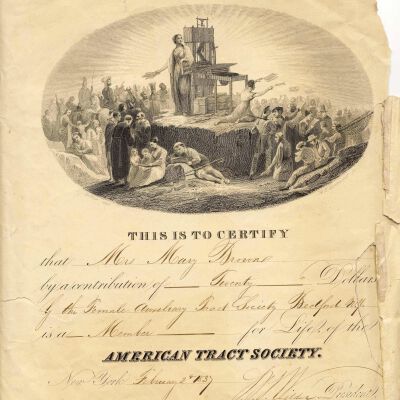 THIS IS TO CERTIFY
that Mrs Mary Browne
by a contribution of Twenty Dollars
of the Female Auxiliary Tract Society Bedford
is a Member for Life of the
AMERICAN TRACT SOCIETY.
New York February 2d 1837
President